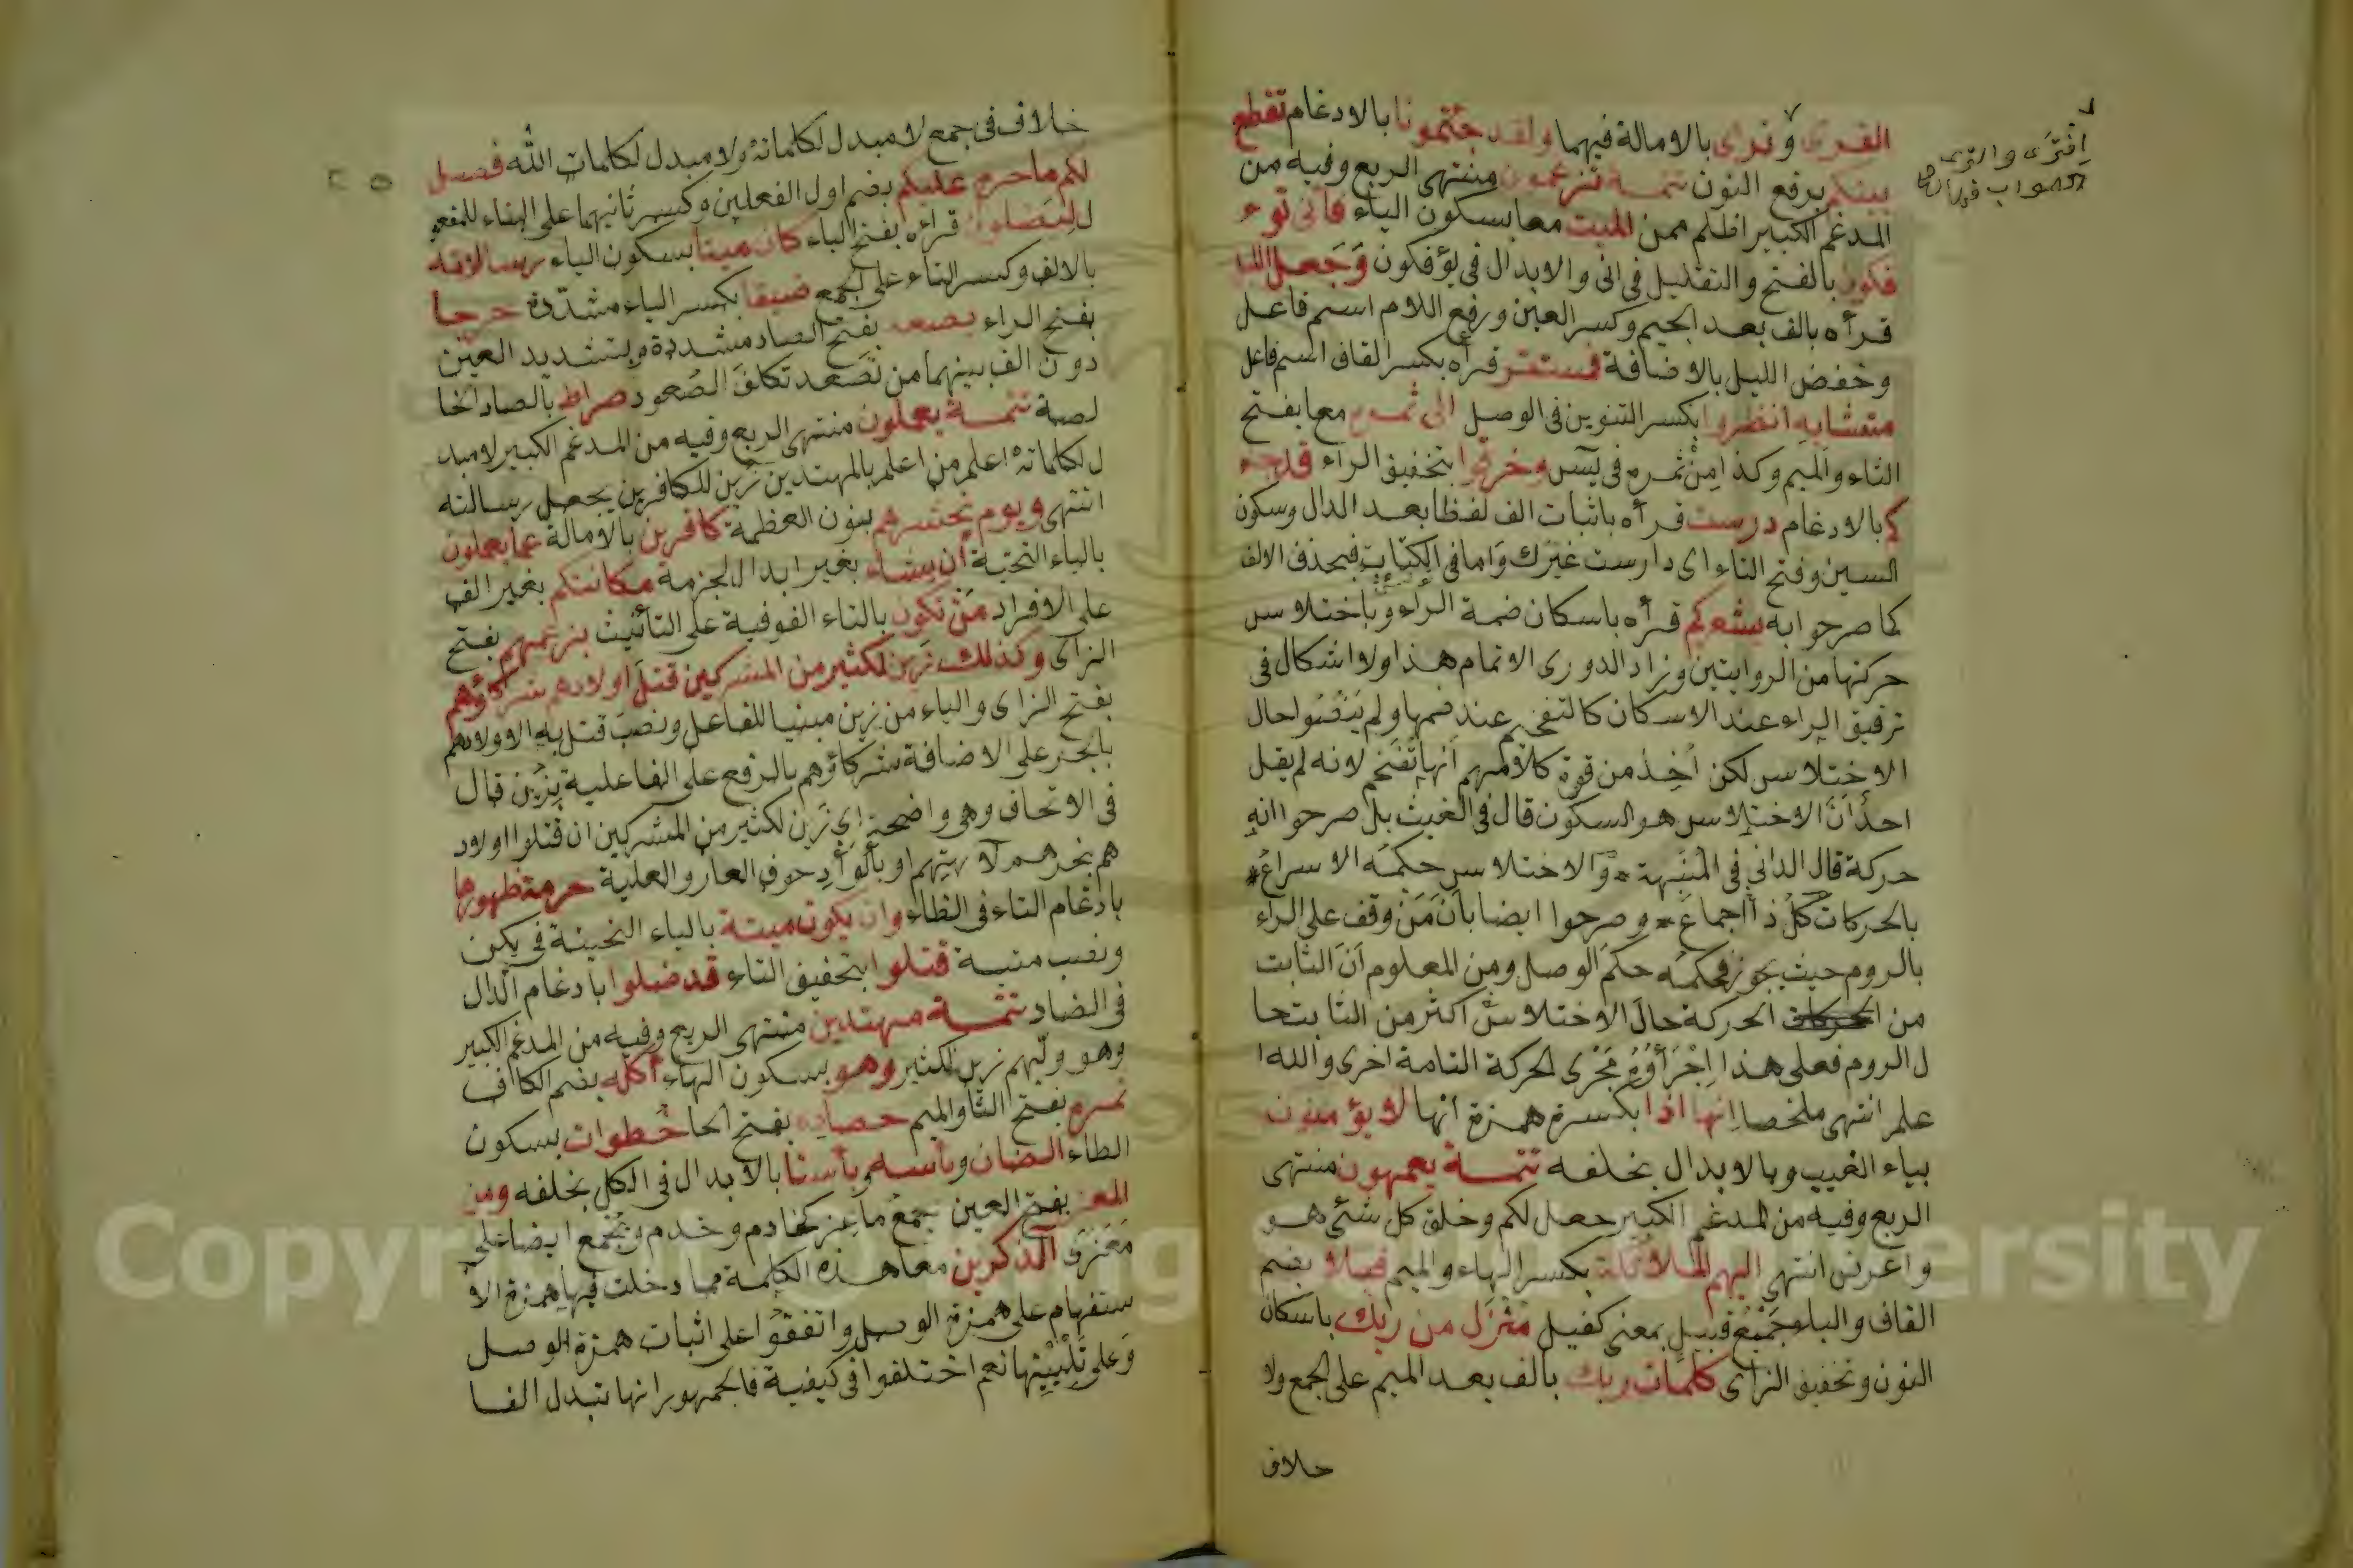 القرى و نرى بالامالة فيهما ولقد جئتمونا بالادغام تقطع
بينكم برفع النون تتمـــة تزعمون منتهى الربع وفيه من
المدغم الكبير اظلم ممن الميت معا بسكون الياء فانى تؤ
فكون بالفتح والتقليل فى انى والابدال فى يؤفكون وَجَعل الليل
قرأه بالف بعد الجيم وكسر العين ورفع اللام اسم فاعل
وخفض الليل بالاضافة فمستقر قرأه بكسر القاف اسم فاعل
متشابه انظروا بكسر التنوين فى الوصل الى ثمره معا بفتح
الثاء والميم وكذا مِنْ ثمره فى يٓسٓ وخرقوا بتخفيق الراء قد جاء
كم بالادغام درست قرأه باثبات الف لفظا بعد الدال وسكون
السين وفتح التاء اى دارست غيرك وَاما فى الكتابة فبحذف الالف
كما صرحوا به يشعركم قرأه باسكان ضمة الراء وباختلاس
حركتها من الروايتين وزاد الدورى الاتمام هذا ولا اشكال فى
ترقيق الراء عند الاسكان كالتفخيم عند ضمها ولم يَنُصُّوا حال
الاختلاس لكن اُخِذ من قوة كلامهم انها تفخم لانه لم يقل
احدٌ اَنَّ الاختلاس هو السكون قال فى الغيث بل صرحوا انه
حركة قال الدانى فى المنَبِّهة * وَالاختلاس حكمُه الاسراعُ *
بالحركات كلُّ ذا اجماعُ * وصرحوا ايضا بأن مَنْ وقف على الراء
بالروم حيث يجوز فحكمُه حكم الوصل ومن المعلوم اَنَّ الثابت
من الحركة حالَ الاختلاس اكثر من الثابت حا
ل الروم فعلى هذا اِجْرَاؤُهُ مَجْرى الحركة التامة احرى والله ا
علم انتهى ملخصا اِنها اذا بكسرة همزة انها لا يؤمنون
بياء الغيب وبالابدال بخلفه تتمـــة يعمهون منتهى
الربع وفيه من المدغم الكبير جعل لكم وخلق كل شئ هو
واعرض انتهى اليهم الملائكة بكسر الهاء والميم قبلا بضم
القاف والباء جَمْعُ قبيل بمعنى كفيل مُنْزَل من ربك باسكان
النون وتخفيق الزاى كلمات ربك بالف بعد الميم على الجمع ولا
خلاف
خلاف فى جمع لا مبدل لكلماته ولا مبدل لكلمات الله فصل
لكم ما حرم عليكم بضم اول الفعلين وكسر ثانيهما على البناء للمفعو
ل ليَضلون قرأه بفتح الياء كان ميتا بسكون الياء رسالاته
بالالف وكسر التاء على الجمع ضيقا بكسر الياء مشدّدة حرجا
بفتح الراء يصعد بفتح الصاد مشددة وبتشديد العين
دون الف بينهما من تصَعد تكلفَ الصُعود صراط بالصاد الخا
لصة تتمـــة يعملون منتهى الربع وفيه من المدغم الكبير لا مبد
ل لكلماته اعلم من اعلم بالمهتدين زُين للكافرين يجعل رسالته
انتهى ويوم نحشرهم بنون العظمة كافرين بالامالة عما يعملون
بالياء التحتية اِن يشاء بغير ابدال لجزمه مكانتكم بغير الف
على الافراد مَنْ تكون بالتاء الفوقية على التأنيث بزعمهم بفتح
الزاى وكذلك زَين لكثير من المشركين قتلَ اولادهم شركاؤهم
بفتح الزاى والياء من زين مبنيا للفاعل ونصبَ قتل به الاولادهم
بالجر على الاضافة شركاؤهم بالرفع على الفاعلية بِزَين قال
فى الاتحاف وهى واضحة اى زَين لكثير من المشركين ان قتلوا اولاد
هم بنحرهم لآلهتهم او بالوَأْدِ خوف العار والعلية حرمت ظهورها
بادغام التاء فى الظاء وان يكون ميتة بالياء التحيتة فى يكن
ونصب ميتة قتلوا بتخفيق التاء قد ضلوا بادغام الدال
فى الضاد تتمـــة مهتدين منتهى الربع وفيه من المدغم الكبير
وهو وليهم زين لكثير وهو بسكون الهاء أكله بضم الكاف
ثمره بفتح الثا والميم حصاده بفتح الحا خُطوات بسكون
الطاء الضان وبأسه وبأسنا بالابدال فى الكل بخلفه ومن
المعز بفتح العين جمعُ ماعِز كخادم وخدم ويُجْمع ايضا على
مَعْزى آلذكرين معا هذه الكلمة مما دخلت فيها همزة الا
ستفهام على همزة الوصل واتفقوا على اثبات همزة الوصل
وَعلى تَلْيِيْنِها نعم اختلفوا فى كيفية فالجمهور انها تبدل الفا
Copyright © King Saud University